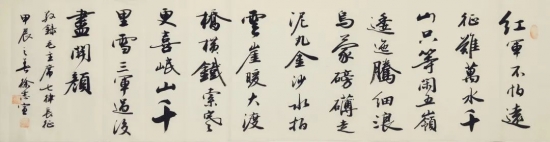 红军不怕远
征难万水千
山只等闲五岭
逶迤腾细浪
乌蒙磅礴走
泥丸金沙水拍
云崖暖大渡
桥横铁索寒
更喜岷山千
里雪三军过后
尽开颜
敬录毛主席七律长征
甲辰之春